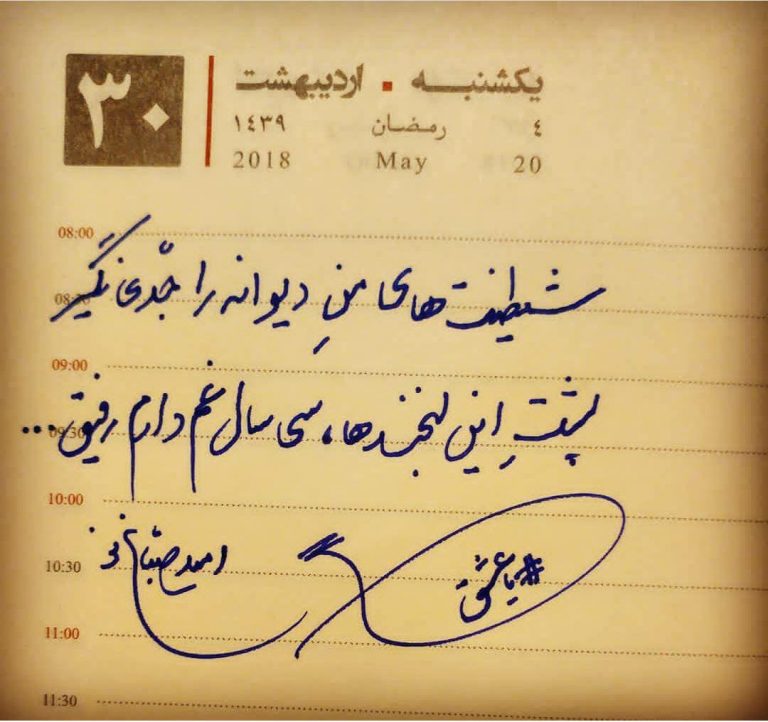 ۳۰
یکشنبه . اردیبهشت
٤ رمضان ١٤٣٩
20 May 2018
08:00
شیطنت های منِ دیوانه را جدّی نگیر
08:30
09:00
پشتِ این لبخندها، سی سال غم دارم رفیق...
09:30
10:00
#یاعشق
امید صباغ نو
10:30
11:00
11:30